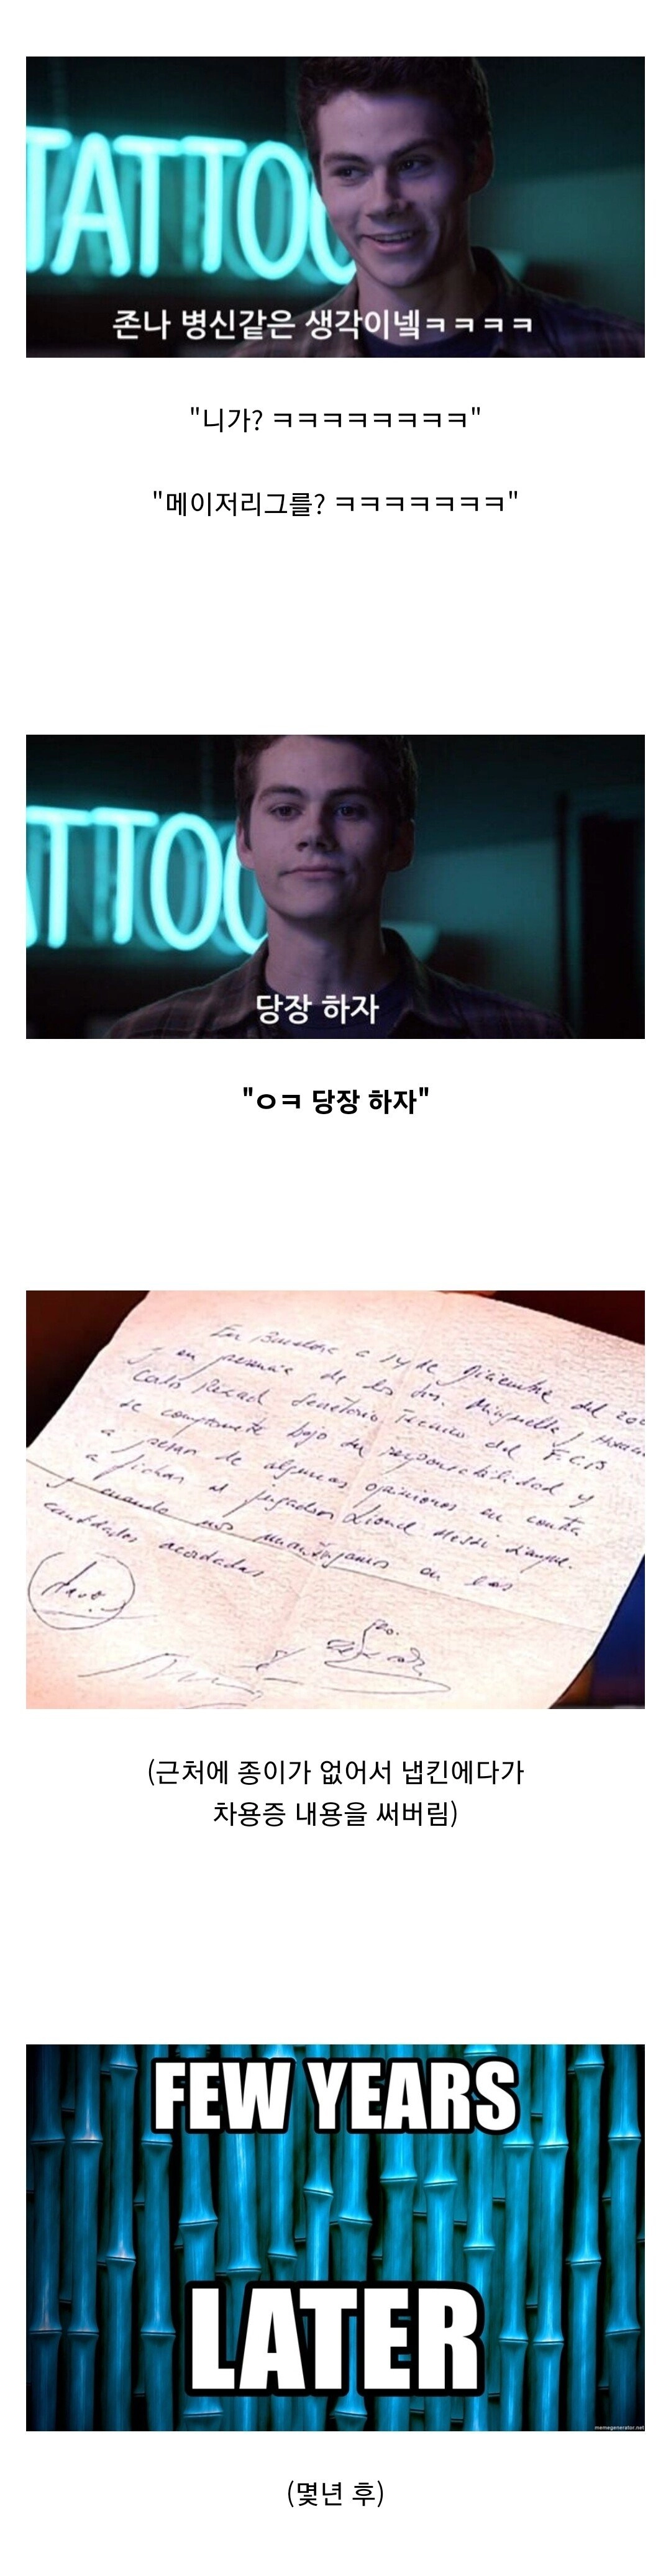 TATTOO
존나 병신같은 생각이넼ㅋㅋㅋㅋ
"니가? ㅋㅋㅋㅋㅋㅋㅋㅋ"
"메이저리그를? ㅋㅋㅋㅋㅋㅋㅋ"
ATTOO
당장 하자
"ㅇㅋ 당장 하자"
En Barcelona a 14 de diciembre del 200
y en presencia de los Srs. Minguella y Horacio
Carlos Rexach Secretario Técnico del F.C.B
se compromete bajo su responsabilidad y
a pesar de algunas opiniones en contra
a fichar al jugador Lionel Messi siempre
y cuando nos mantengamos en las
cantidades acordadas
(근처에 종이가 없어서 냅킨에다가
차용증 내용을 써버림)
FEW YEARS
LATER
memegenerator.net
(몇년 후)